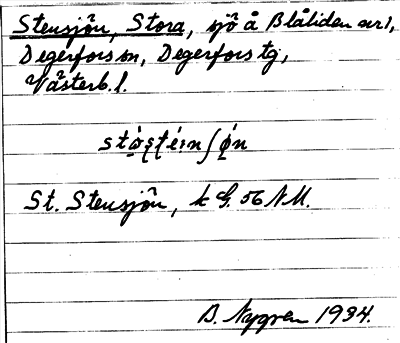 Stensjön, Stora, sjö å Blåliden nr 1,
Degerfors sn, Degerfors tg,
Västerb. l.
St. Stensjön, k G. 56 N.M.
B. Nygren 1934.